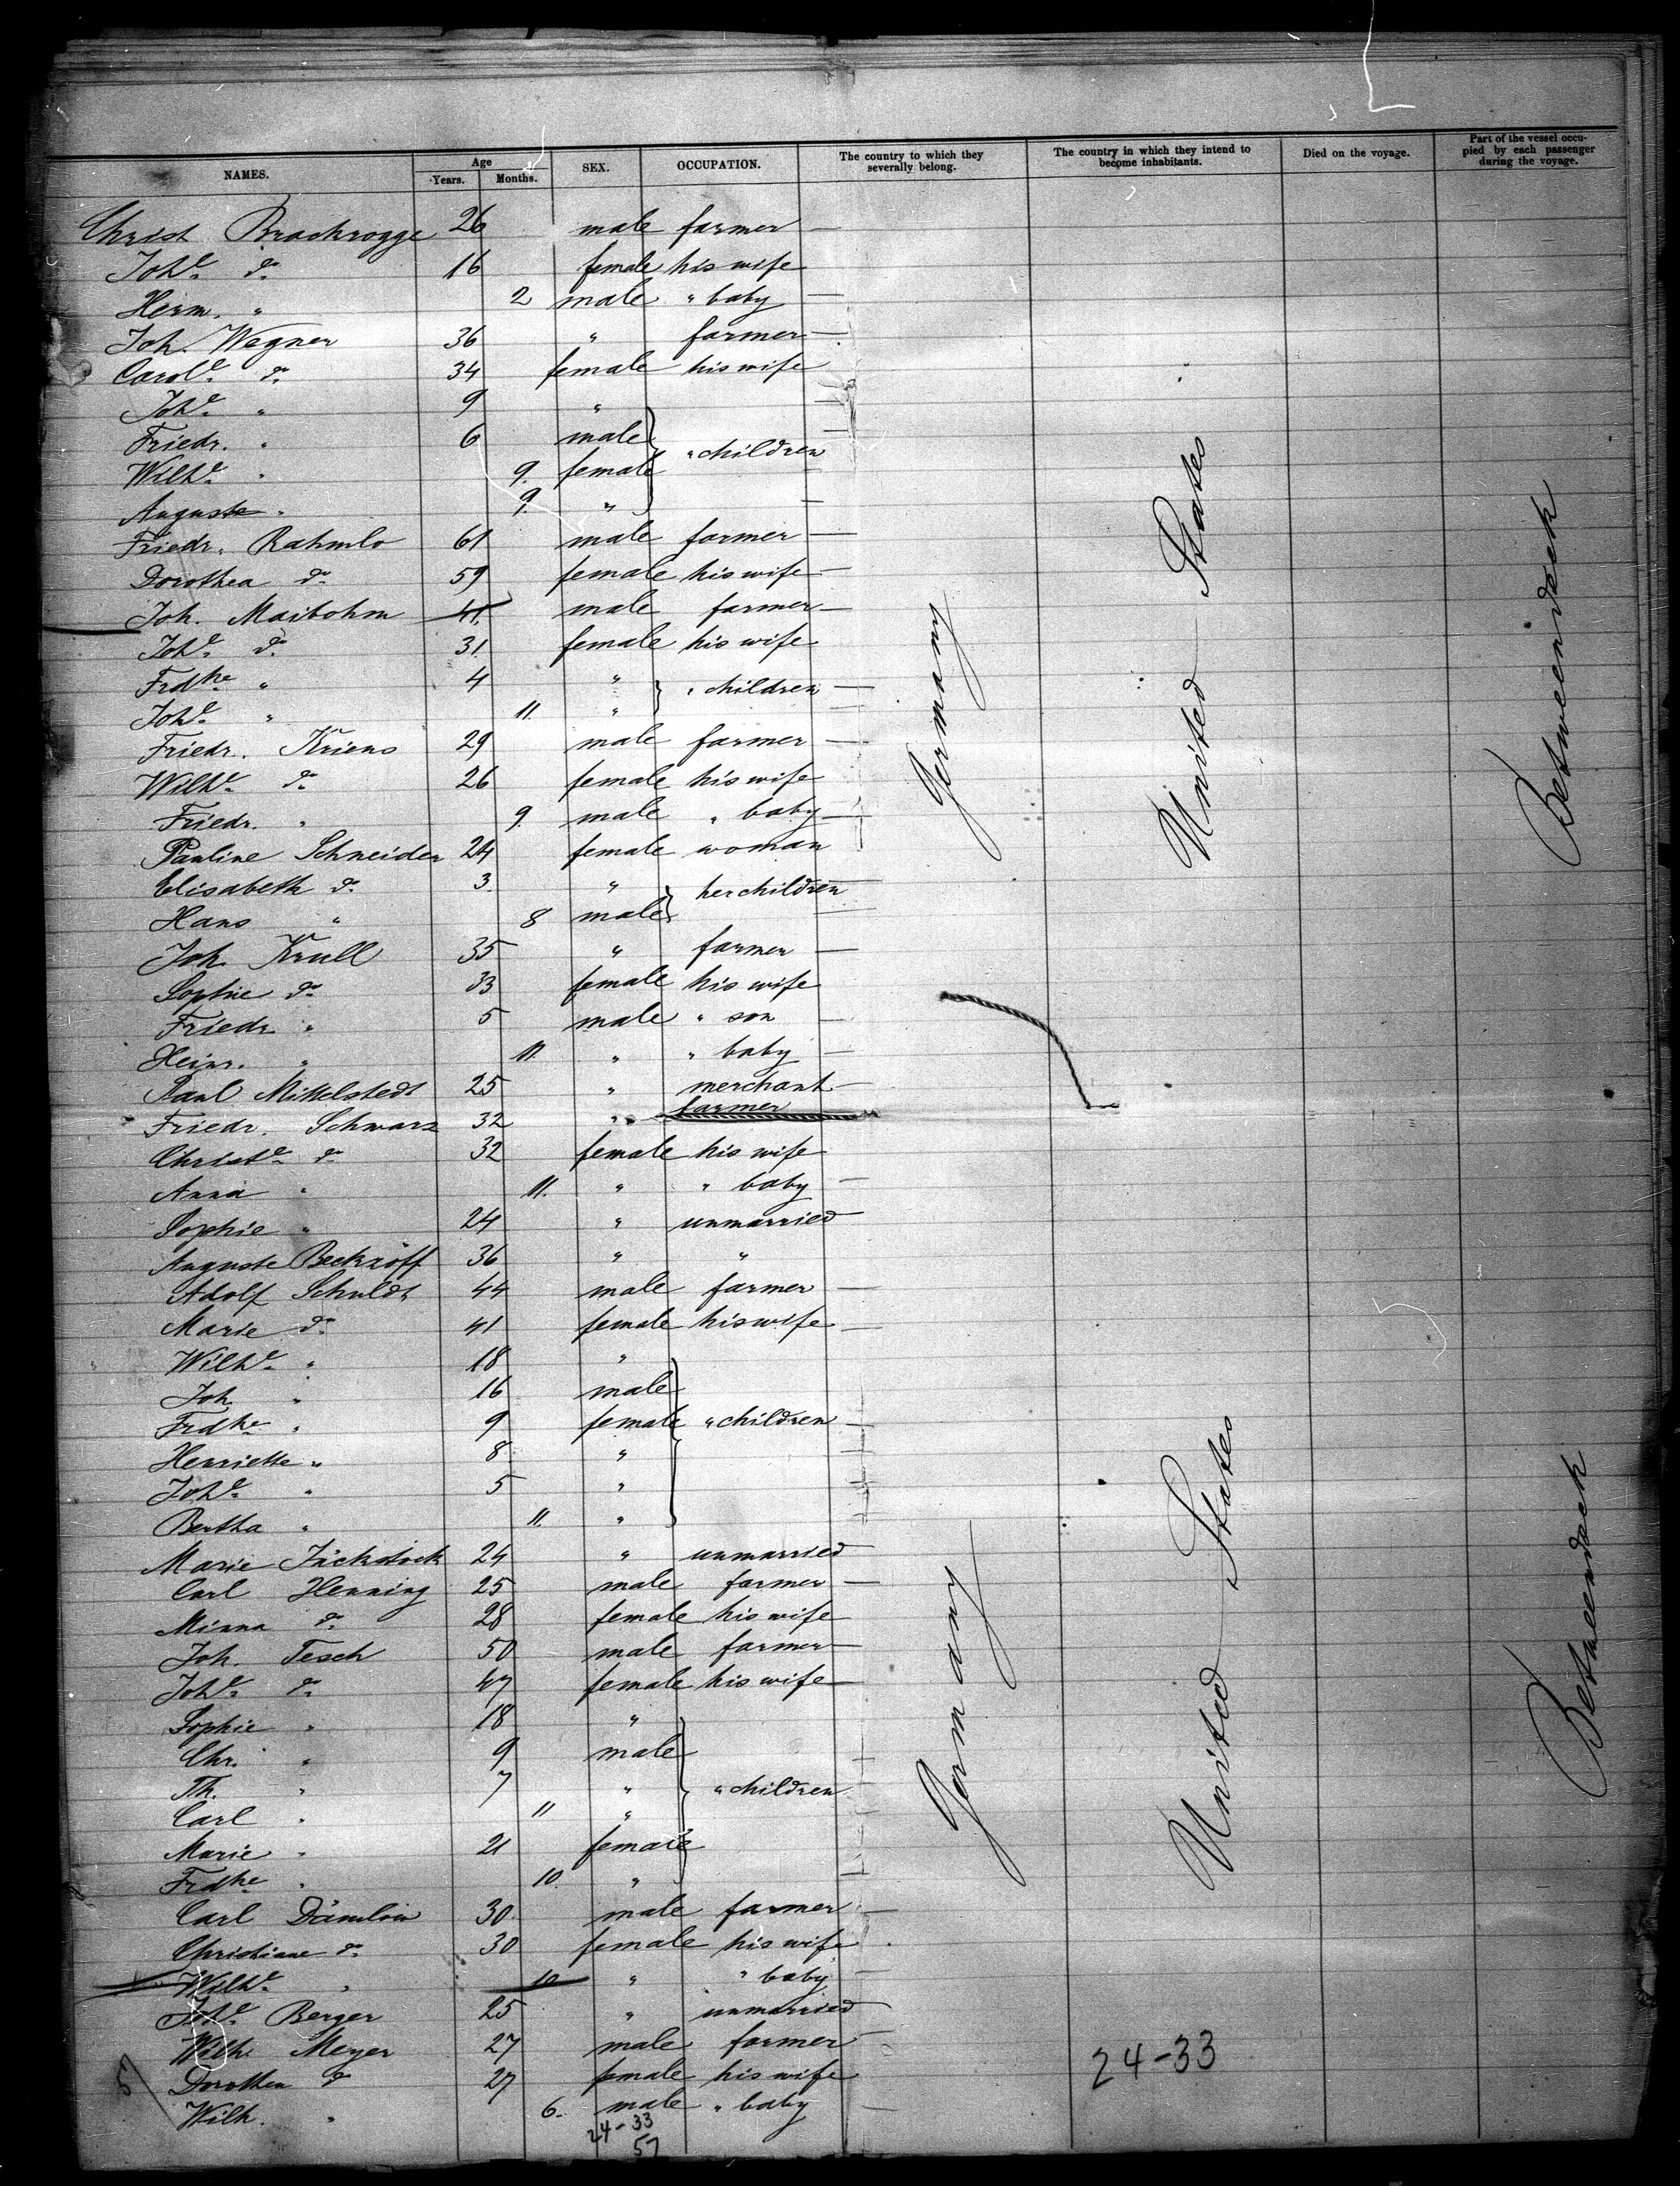 NAMES. Age Years. Months. SEX. OCCUPATION. The country to which they severally belong. The country in which they intend to become inhabitants. Died on the voyage. Part of the vessel occupied by each passenger during the voyage.
Christ Brackrogge 26 male farmer —
Johe. do. 16 female his wife
Herm. " 2 male " baby —
Joh. Wegner 36 " farmer —
Carole. do. 34 female his wife
Johe. " 9 "
Friedr. " 6 male
Wilhe. " 9. female " children
Auguste " 9. "
Friedr. Rahmlo 61 male farmer —
Dorothea do. 59 female his wife —
Joh. Maibohm 41 male farmer —
Johe. do. 31. female his wife
Frdke " 4 " " children —
Johe. " 11. "
Friedr. Kriens 29 male farmer —
Wilhe. do. 26 female his wife
Friedr. " 9. male " baby —
Pauline Schneider 24 female woman
Elisabeth do. 3. " her children
Hans " 8 male
Joh. Krull 35 " farmer —
Sophie do. 33 female his wife
Friedr. " 5 male " son
Heinr. " 11. " " baby —
Paul Mittelstedt 25 " merchant —
Friedr. Schwarz 32 " farmer
Christe. do. 32 female his wife
Anna " 11. " " baby —
Sophie " 24 " unmarried
Auguste Beckröff 36 " "
Adolf Schuldt 44 male farmer —
Marie do. 41 female his wife —
Wilhe. " 18 "
Joh. " 16 male
Frdke " 9 female " children
Henriette " 8 "
Johe. " 5 "
Bertha " 11. "
Marie Jäckstock 24 " unmarried
Carl Henning 25 male farmer —
Minna do. 28 female his wife
Joh. Tesch 50 male farmer —
Johe. do. 47 female his wife —
Sophie " 18 "
Chr. " 9 male
Th. " 7 " " children
Carl " 11 "
Marie " 21 female
Frdke " 10. "
Carl Dämlow 30 male farmer
Christiane do. 30 female his wife
Wilhe. " 10 " " baby
Johe. Berger 25 " unmarried
Wilh. Meyer 27 male farmer —
Dorothea do 27 female his wife
Wilh. " 6. male " baby
24-33
57
5
Germany
United States
Betweendeck
Germany
United States
Betweendeck
24-33